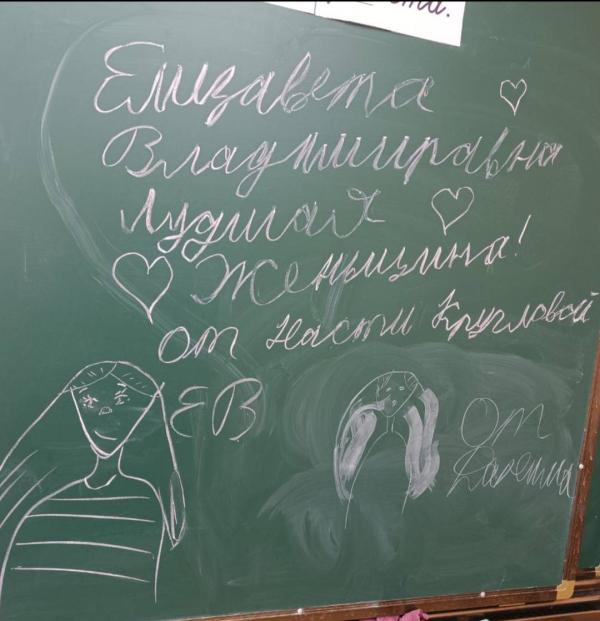 Елизавета
Владимиравна
Лудшая
Женьщина!
от Насти Кругловой
ЕВ
от